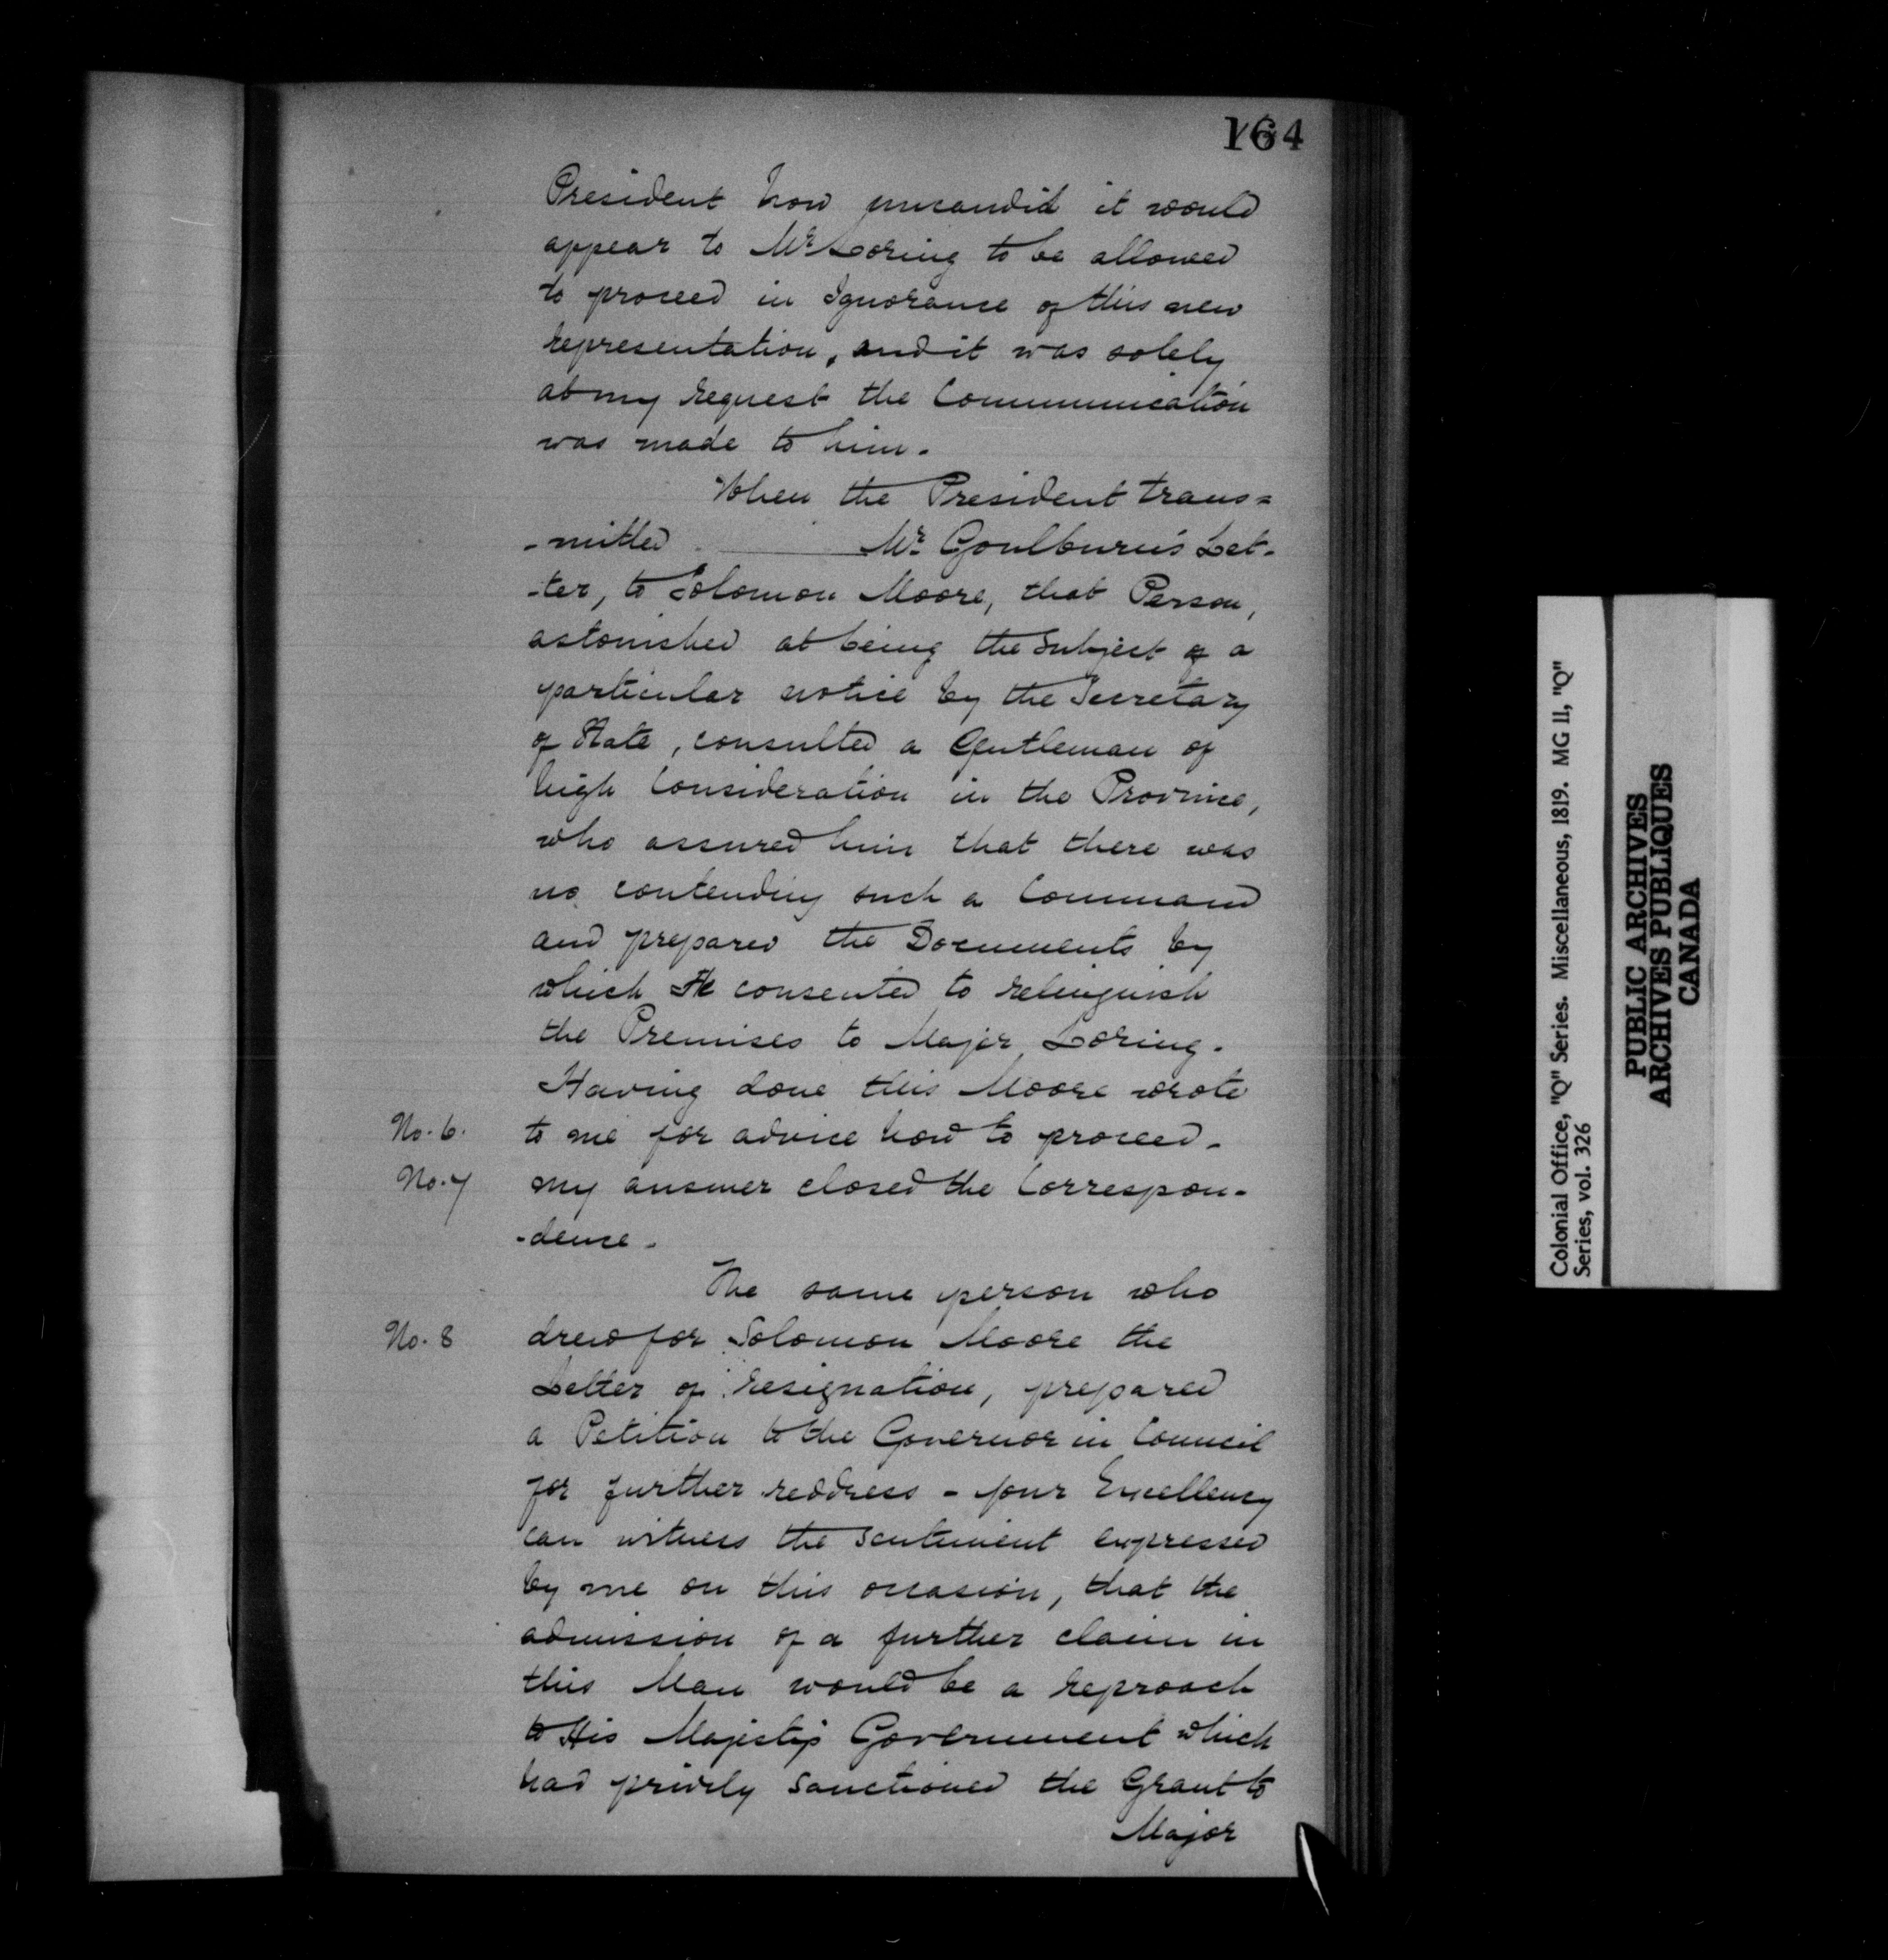 164
President how uncandid it would
appear to Mr Loring to be allowed
to proceed in Ignorance of this new
representation, and it was solely
at my request the Communication
was made to him.
When the President trans=
-mitted Mr. Goulburn's Let-
-ter, to Solomon Moore, that Person,
astonished at being the subject of a
particular notice by the Secretary
of State, consulted a Gentleman of
high Consideration in the Province,
who assured him that there was
no contending such a Command
and prepared the Documents by
which He consented to relinquish
the Premises to Major Loring.
Having done this Moore wrote
No. 6. to me for advice how to proceed -
No. 7 my answer closed the Correspon-
-dence -
The same person who
No. 8 drew for Solomon Moore the
Letter of resignation, prepared
a Petition to the Governor in Council
for further redress - Your Excellency
can witness the sentiment expressed
by me on this occasion, that the
admission of a further claim in
this Man would be a reproach
to His Majesty's Government which
had privily sanctioned the Grant to
Major
Colonial Office, "Q" Series. Miscellaneous, 1819. MG 11, "Q"
Series, vol. 326
PUBLIC ARCHIVES
ARCHIVES PUBLIQUES
CANADA